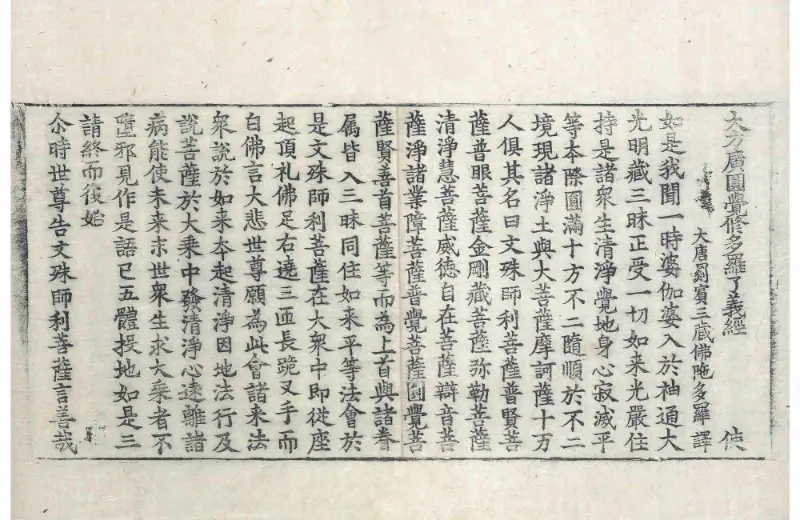 大方廣圓覺修多羅了義經 使
大唐罽賓三蔵佛陁多羅 譯
如是我聞一時婆伽婆入於神通大
光明藏三昧正受一切如来光嚴住
持是諸衆生清淨覺地身心寂滅平
等本際圓滿十方不二隨順於不二
境現諸淨土與大菩薩摩訶薩十万
人俱其名曰文殊師利菩薩普賢菩
薩普眼菩薩金剛藏菩薩弥勒菩薩
清淨慧菩薩威徳自在菩薩辯音菩
薩淨諸業障菩薩普覺菩薩圓覺菩
薩賢善首菩薩等而為上首與諸眷
属皆入三昧同住如来平等法會於
是文殊師利菩薩在大衆中即従座
起頂礼佛足右遶三匝長跪叉手而
白佛言大悲世尊願為此會諸来法
衆說於如来夲起清淨因地法行及
說菩薩於大乗中發清淨心逺離諸
病能使未来末世衆生求大乗者不
墮邪見作是語已五體投地如是三
請終而復始
尒時世尊告文殊師利菩薩言善哉